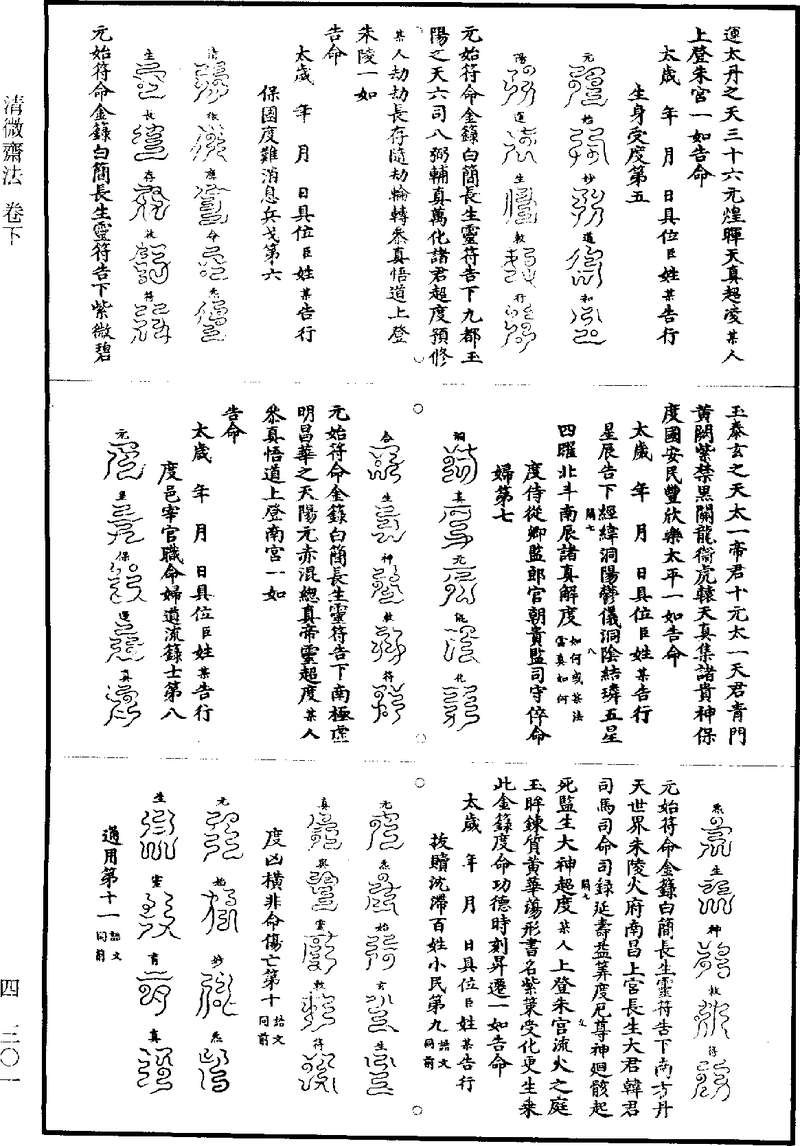 運太丹之天三十六元煌暉天真超凌某人
上登朱宮一如告命
太歲 年 月 日具位臣姓某告行
生身受度第五
元 始 妙 道 和
陽 運 生 敕 符
元始符命金籙白簡長生靈符告下九都玉
陽之天六司八弼輔真萬化諸君超度預修
某人劫劫長存隨劫輪轉叅真悟道上登
朱陵一如
告命
太歲 年 月 日具位臣姓某告行
保國度難消息兵戈第六
清 微 應 命 炁
生 長 存 敕 符
元始符命金籙白簡長生靈符告下紫微碧
玉泰玄之天太一帝君十元太一天君青門
黃闕紫禁黑關龍衛虎轅天真集諸貴神保
度國安民豐欣樂太平一如告命
太歲 年 月 日具位臣姓某告行
星辰告下經緯洞陽欎儀洞陰結璘五星
四曜北斗南辰諸真解度如何或某法當真如何
度侍從卿監郎官朝貴監司守倅命
婦第七
洞 真 元 能 化
合 生 神 敕 符
元始符命金籙白簡長生靈符告下南極虛
明昌華之天陽元赤混緫真帝靈超度某人
叅真悟道上登南宮一如
告命
太歲 年 月 日具位臣姓某告行
度邑宰官職命婦道流籙士第八
元 皇 保 運 真
炁 生 神 敕 符
元始符命金籙白簡長生靈符告下南方丹
天世界朱陵火府南昌上宮長生大君韓君
司馬司命司錄延壽益筭度厄尊神廻骸起
死監生大神超度某人上登朱宮流火之庭
玉眸鍊質黃華蕩形書名紫菓受化更生乗
此金籙度命功德時刻昇遷一如告命
太歲 年 月 日具位臣姓某告行
拔贖沈滯百姓小民第九誥文同前
元 炁 始 玄 生
真 與 靈 敕 符
度凶橫非命傷亡第十誥文同前
元 始 妙 炁
生 靈 育 真
通用第十一誥文同前
清微齋法 卷下
四 三〇一